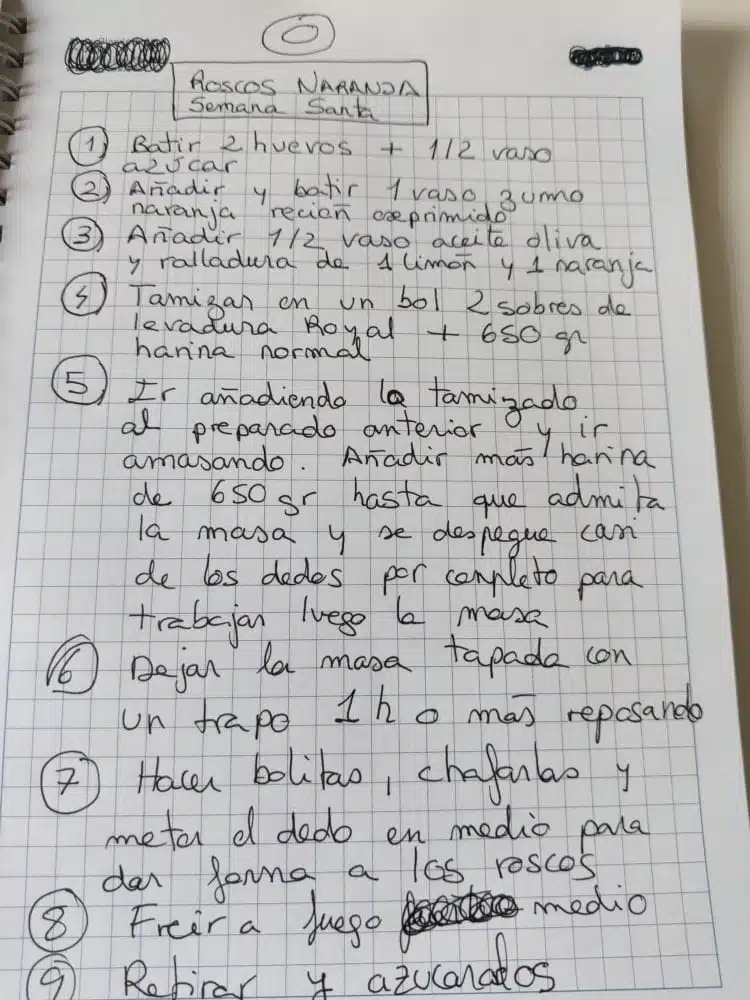 ROSCOS NARANJA
Semana Santa
1 Batir 2 huevos + 1/2 vaso
azúcar
2 Añadir y batir 1 vaso zumo
naranja recién exprimido
3 Añadir 1/2 vaso aceite oliva
y ralladura de 1 limón y 1 naranja
4 Tamizar en un bol 2 sobres de
levadura Royal + 650 gr
harina normal
5 Ir añadiendo lo tamizado
al preparado anterior y ir
amasando. Añadir más harina
de 650 gr hasta que admita
la masa y se despegue casi
de los dedos por completo para
trabajar luego la masa
6 Dejar la masa tapada con
un trapo 1h o más reposando
7 Hacer bolitas, chafarlas y
meter el dedo en medio para
dar forma a los roscos
8 Freír a fuego medio
9 Retirar y azucararlos